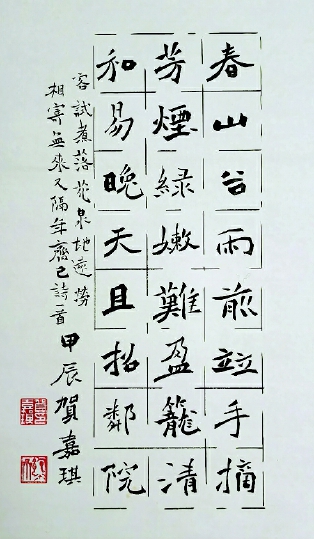 春山谷雨前竝手摘
芳煙緑嫩難盈籠清
和易晚天且招鄰院
客試煮落花泉地遠勞
相寄無來又隔年齊己詩一首
甲辰賀嘉琪